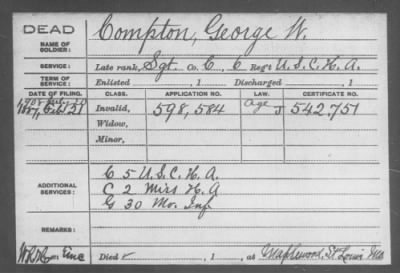 DEAD
NAME OF SOLDIER: Compton, George W.
SERVICE: Late rank, Sgt. Co. C, 6 Reg't U.S.C.H.A.
TERM OF SERVICE: Enlisted , 1 Discharged , 1
DATE OF FILING. CLASS. APPLICATION NO. LAW. CERTIFICATE NO.
Invalid, 598,584 Age J 542,751
Widow,
Minor,
ADDITIONAL SERVICES:
C 5 U.S.C.H.A
C 2 Miss H.A
G 30 Mo. Inf
REMARKS:
Died , 1 , at Maplewood, St Louis Mo